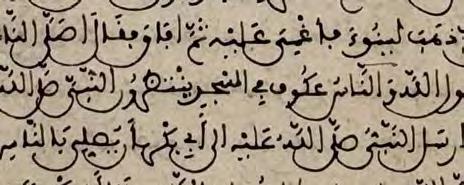 ذهب لينوء فأغمي عليه ثمّ افاق فقال اصلّى النا
ول اللّه والنّاس عكوف في المسجد ينتظرون النّبيّ صلّى اللّه
ارسل النّبيّ صلّى اللّه عليه الى أبي بكر بأن يصلي بالناس